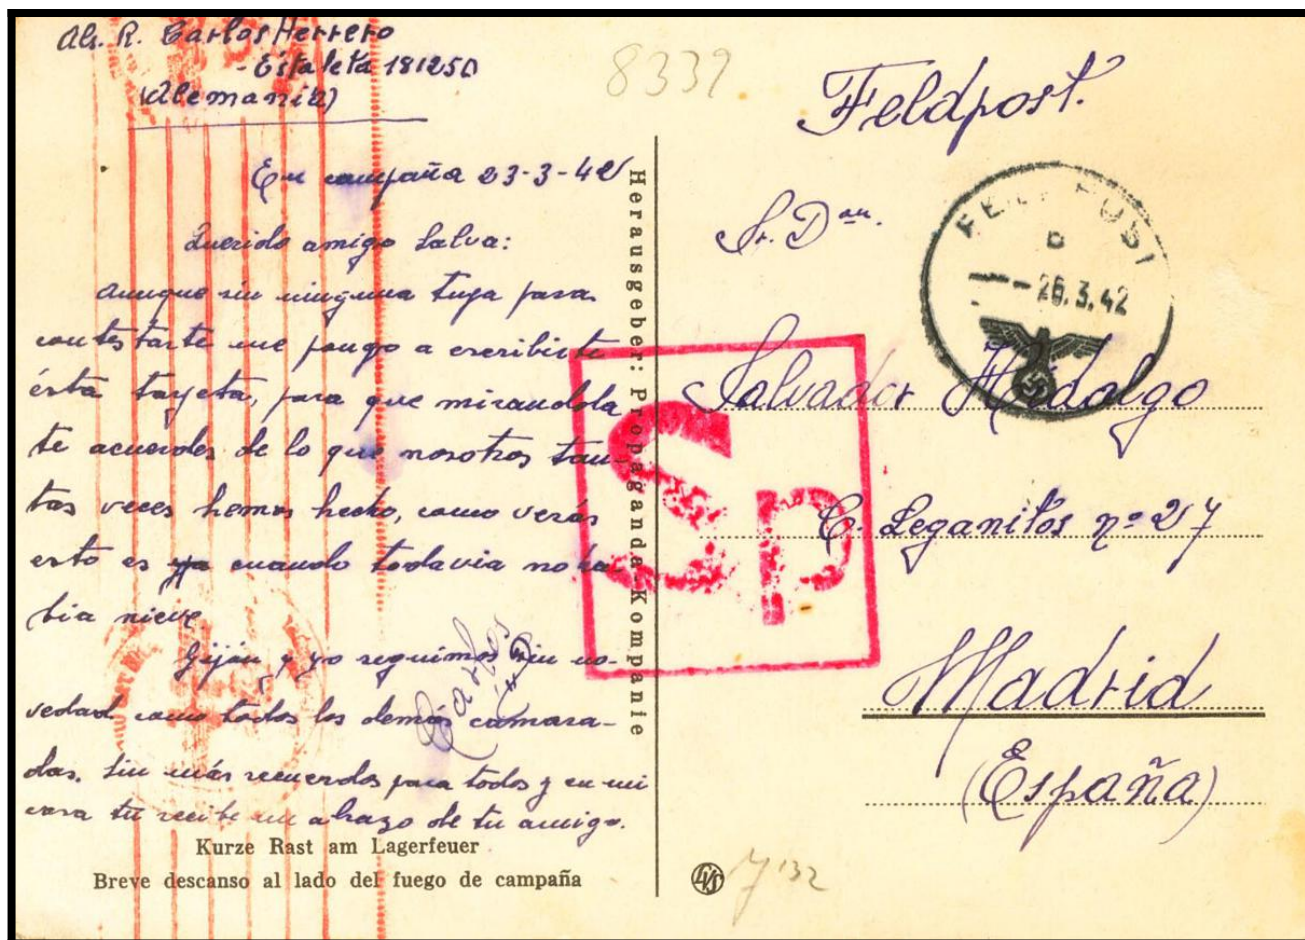 R. Carlos Herrero
- Estaleta 18125D
(Alemania)
En campaña 23-3-42
Querido amigo Salva:
Aunque sin ninguna tuya para
contestarte me pongo a escribirte
ésta tarjeta, para que mirandola
te acuerdes de lo que nosotros tan-
tas veces hemos hecho, como verás
esto es cuando todavia no ha-
bia nieve.
Gijón y yo seguimos sin no-
vedad como todos los demás camara-
das. Sin más recuerdos para todos y en mi
tu recibe un abrazo de tu amigo.
Carlos
Kurze Rast am Lagerfeuer
Breve descanso al lado del fuego de campaña
Herausgeber: Propaganda-Kompanie
8339
Feldpost.
FELDPOST
b
26.3.42
Sr. Dn.
Salvador Hidalgo
C. Leganitos nº 27
Madrid
(España)
Sp